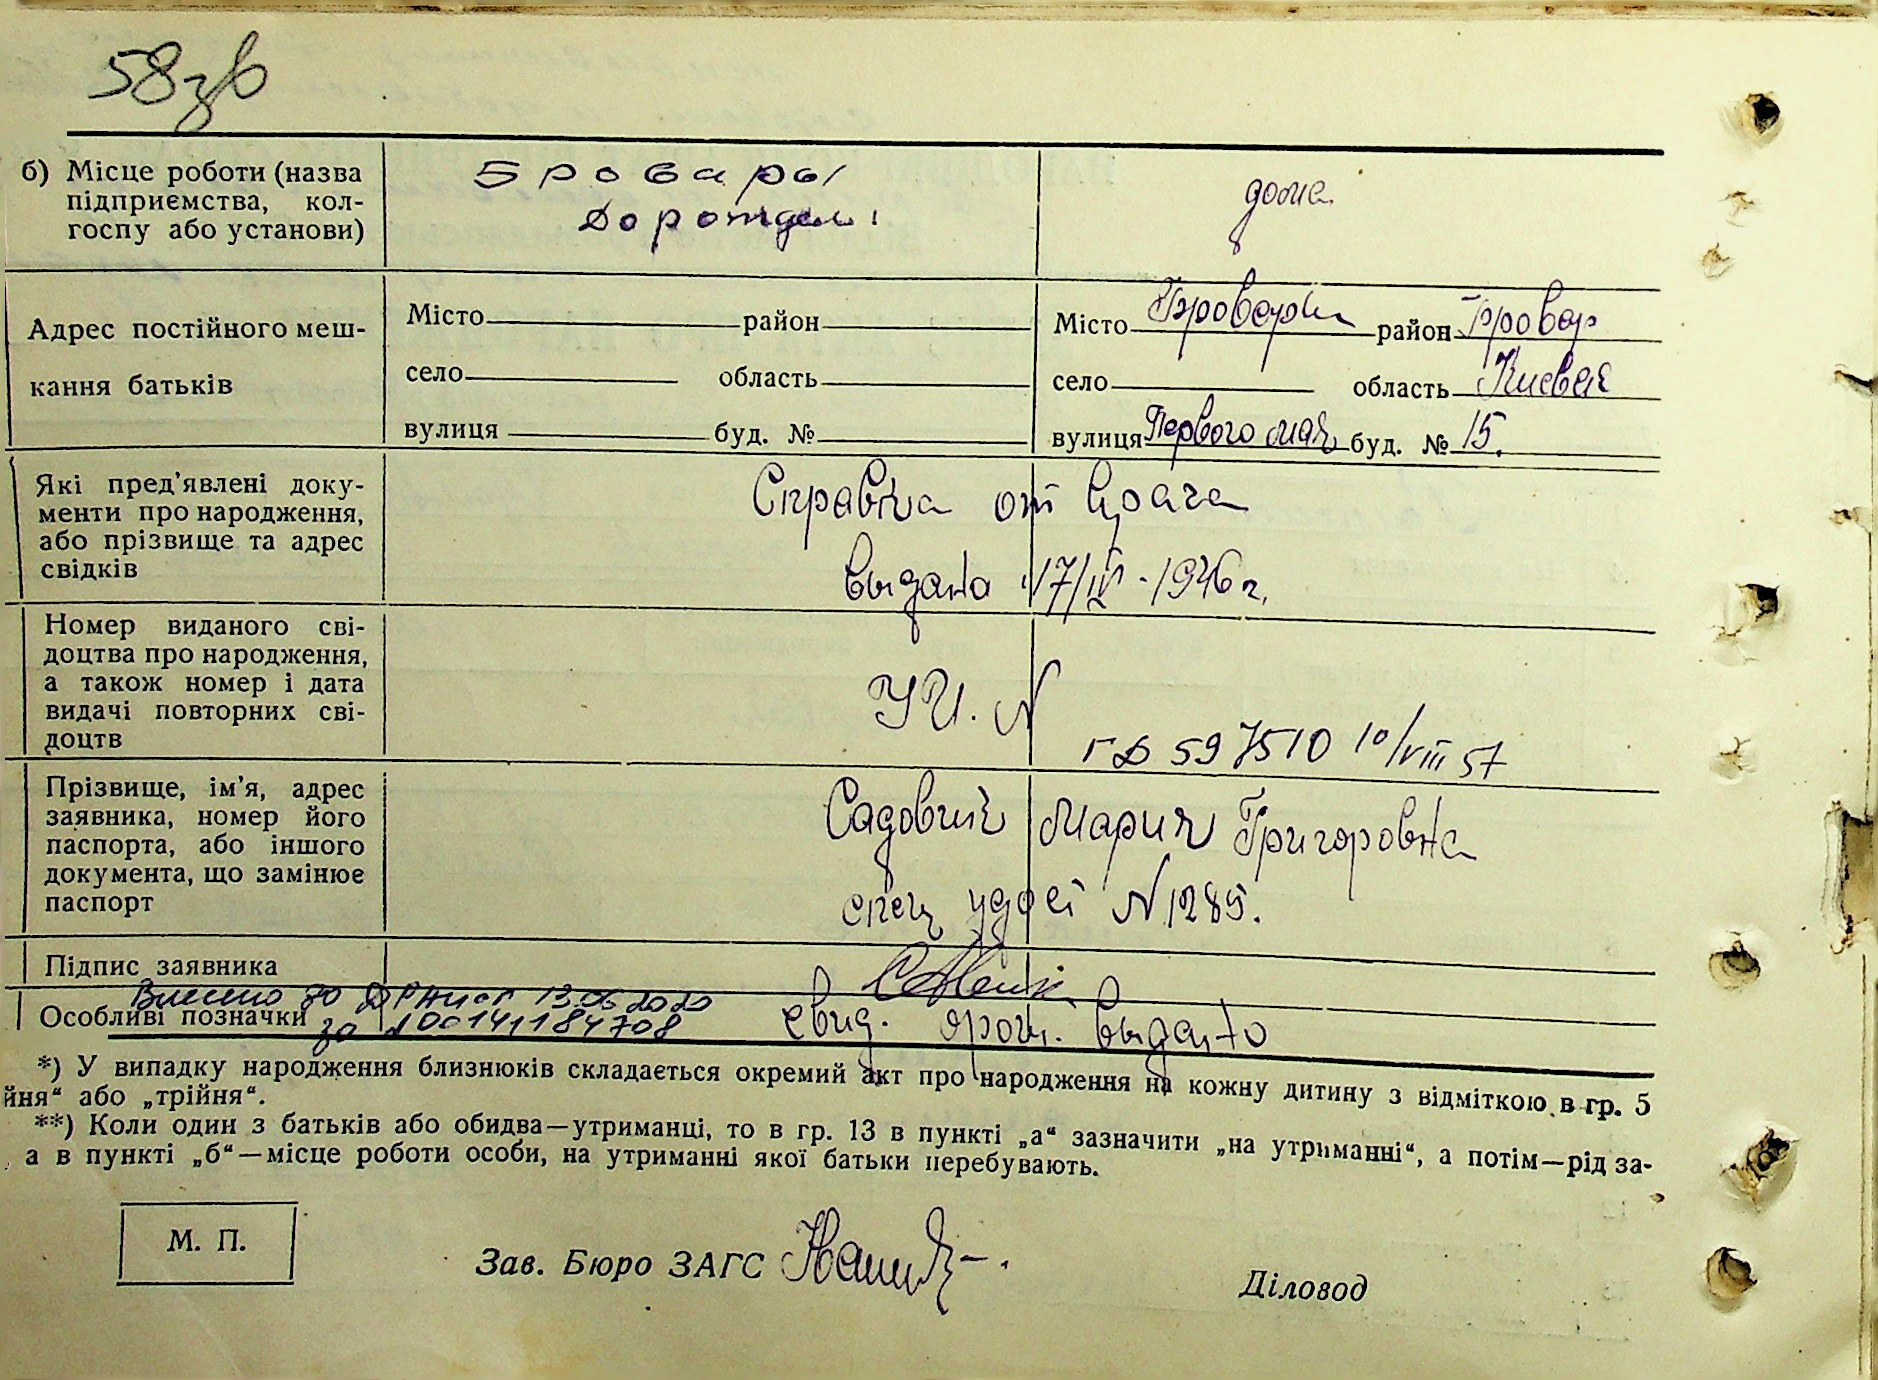 58зв
б) Місце роботи (назва
підприємства, кол-
госпу або установи)
Бровары
Дорождел.
дома.
Адрес постійного меш-
кання батьків
Місто район
село область
вулиця буд. №
Місто Бровары район Бровар
село область Киевая
вулиця Первого мая буд. № 15.
Які пред’явлені доку-
менти про народження,
або прізвище та адрес
свідків
Справка от врача
выдана 17/IV-1946 г.
Номер виданого сві-
доцтва про народження,
а також номер і дата
видачі повторних сві-
доцтв
УИ. N
ГД 597510 10/VIII 57
Прізвище, ім’я, адрес
заявника, номер його
паспорта, або іншого
документа, що замінює
паспорт
Садовий Мария Григоровна
спец удост N 1285.
Підпис заявника
Особливі позначки
Внесено до ДРАЦСГ 13.06.2020
за N 00141184708
свид. выдано
*) У випадку народження близнюків складається окремий акт про народження на кожну дитину з відміткою в гр. 5
йня“ або „трійня“.
**) Коли один з батьків або обидва—утриманці, то в гр. 13 в пункті „а“ зазначити „на утриманні“, а потім—рід за-
а в пункті „б“—місце роботи особи, на утриманні якої батьки перебувають.
М. П.
Зав. Бюро ЗАГС
Діловод